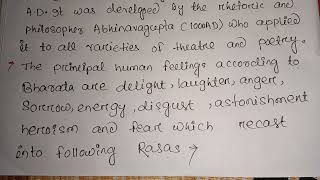 A.D. It was developed by the rhetoric and
philosopher Abhinavagupta (1000AD) who applied
it to all varieties of theatre and poetry.
→ The principal human feelings according to
Bharata are delight, laughter, anger,
Sorrow, energy, disgust, astonishment
heroism and fear which recast
into following Rasas →